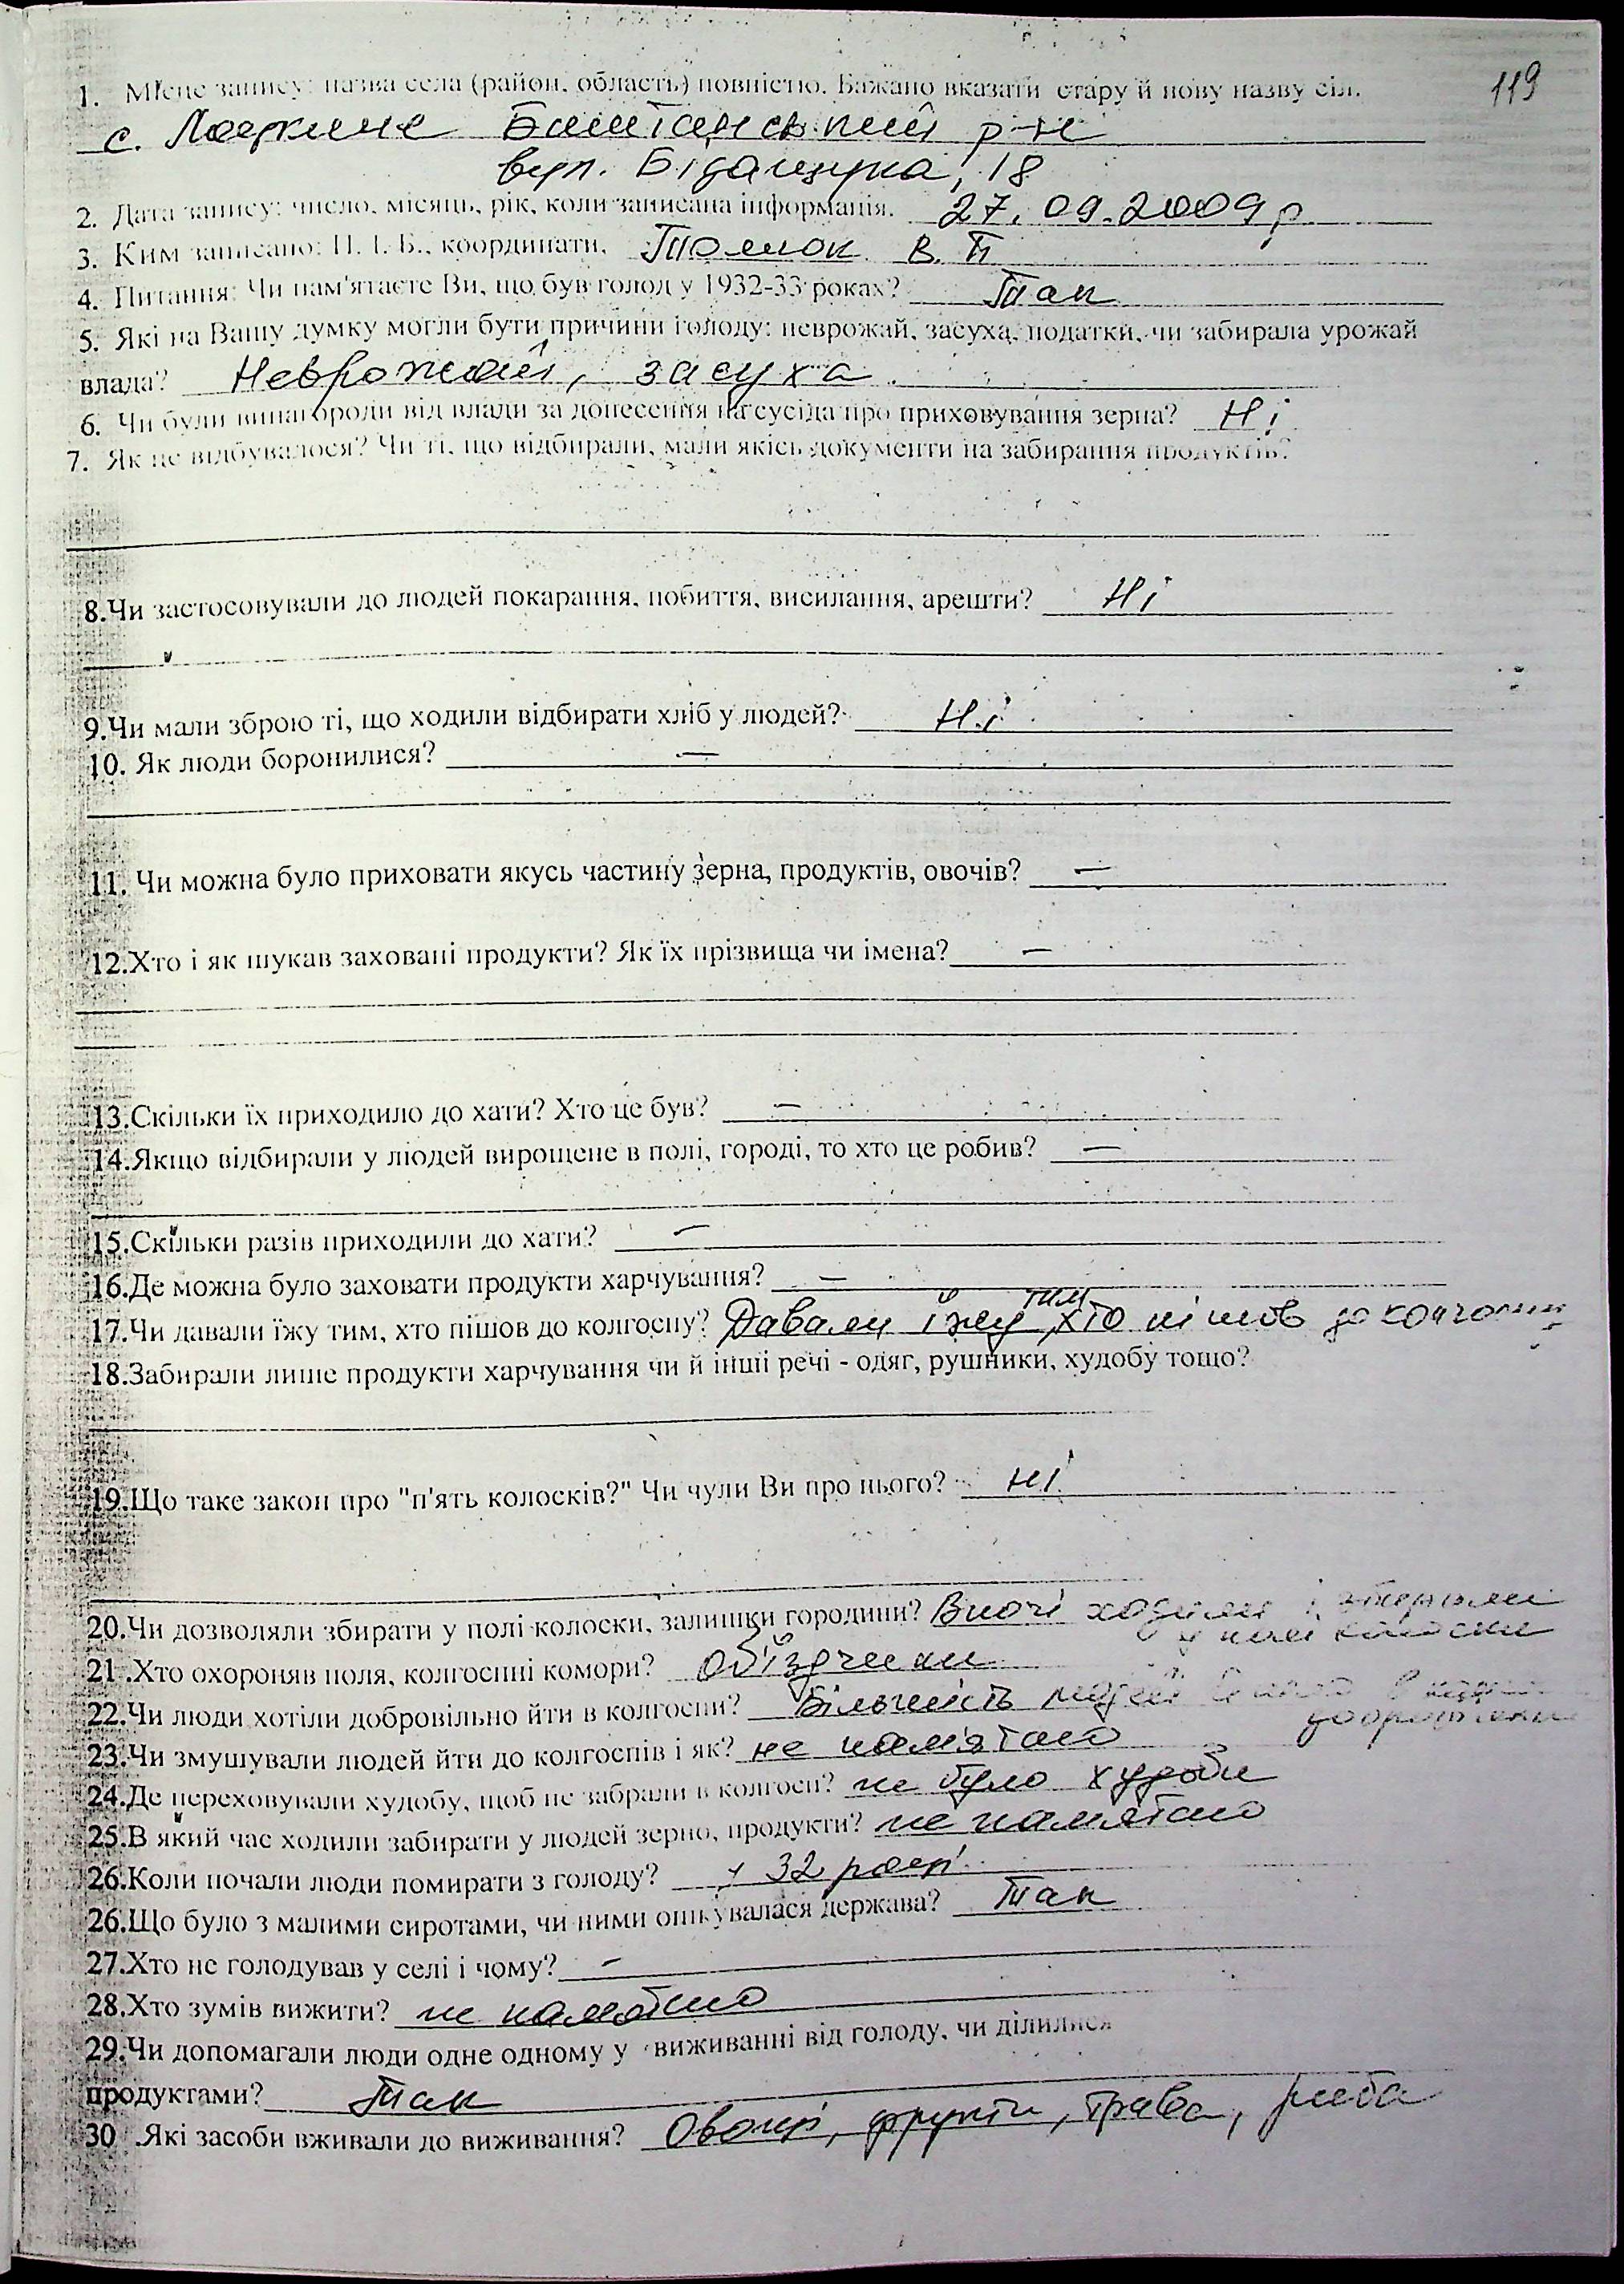 119
1. Місце запису: назва села (район, область) повністю. Бажано вказати стару й нову назву сіл.
с. Баштанський р-н
вул. 18
2. Дата запису: число, місяць, рік, коли записана інформація. 27.09.2009 р.
3. Ким записано: П. І. Б., координати. В. П
4. Питання: Чи пам'ятаєте Ви, що був голод у 1932-33 роках? Так
5. Які на Вашу думку могли бути причини голоду: неврожай, засуха, податки, чи забирала урожай
влада? Неврожай, засуха.
6. Чи були винагороди від влади за донесення на сусіда про приховування зерна? Ні
7. Як це відбувалося? Чи ті, що відбирали, мали якісь документи на забирання продуктів?
8.Чи застосовували до людей покарання, побиття, висилання, арешти? Ні
9.Чи мали зброю ті, що ходили відбирати хліб у людей? Ні
10. Як люди боронилися? —
11. Чи можна було приховати якусь частину зерна, продуктів, овочів? —
12.Хто і як шукав заховані продукти? Як їх прізвища чи імена? —
13.Скільки їх приходило до хати? Хто це був? —
14.Якщо відбирали у людей вирощене в полі, городі, то хто це робив? —
15.Скільки разів приходили до хати? —
16.Де можна було заховати продукти харчування? —
17.Чи давали їжу тим, хто пішов до колгоспу? Давали їжу тим, хто пішов до колгоспу
18.Забирали лише продукти харчування чи й інші речі - одяг, рушники, худобу тощо?
19.Що таке закон про "п'ять колосків?" Чи чули Ви про нього? Ні
20.Чи дозволяли збирати у полі колоски, залишки городини? Вночі ходили і збирали
у полі колоски
21.Хто охороняв поля, колгоспні комори? Об'їздчики
22.Чи люди хотіли добровільно йти в колгоспи? Більшість людей
23.Чи змушували людей йти до колгоспів і як? не пам'ятаю
24.Де переховували худобу, щоб не забрали в колгосп? не було худоби
25.В який час ходили забирати у людей зерно, продукти? не пам'ятаю
26.Коли почали люди помирати з голоду? у 32 році
26.Що було з малими сиротами, чи ними опікувалася держава? Так
27.Хто не голодував у селі і чому? —
28.Хто зумів вижити? не пам'ятаю
29.Чи допомагали люди одне одному у виживанні від голоду, чи ділилися
продуктами? Так
30 .Які засоби вживали до виживання? Овочі, фрукти, трава, риба